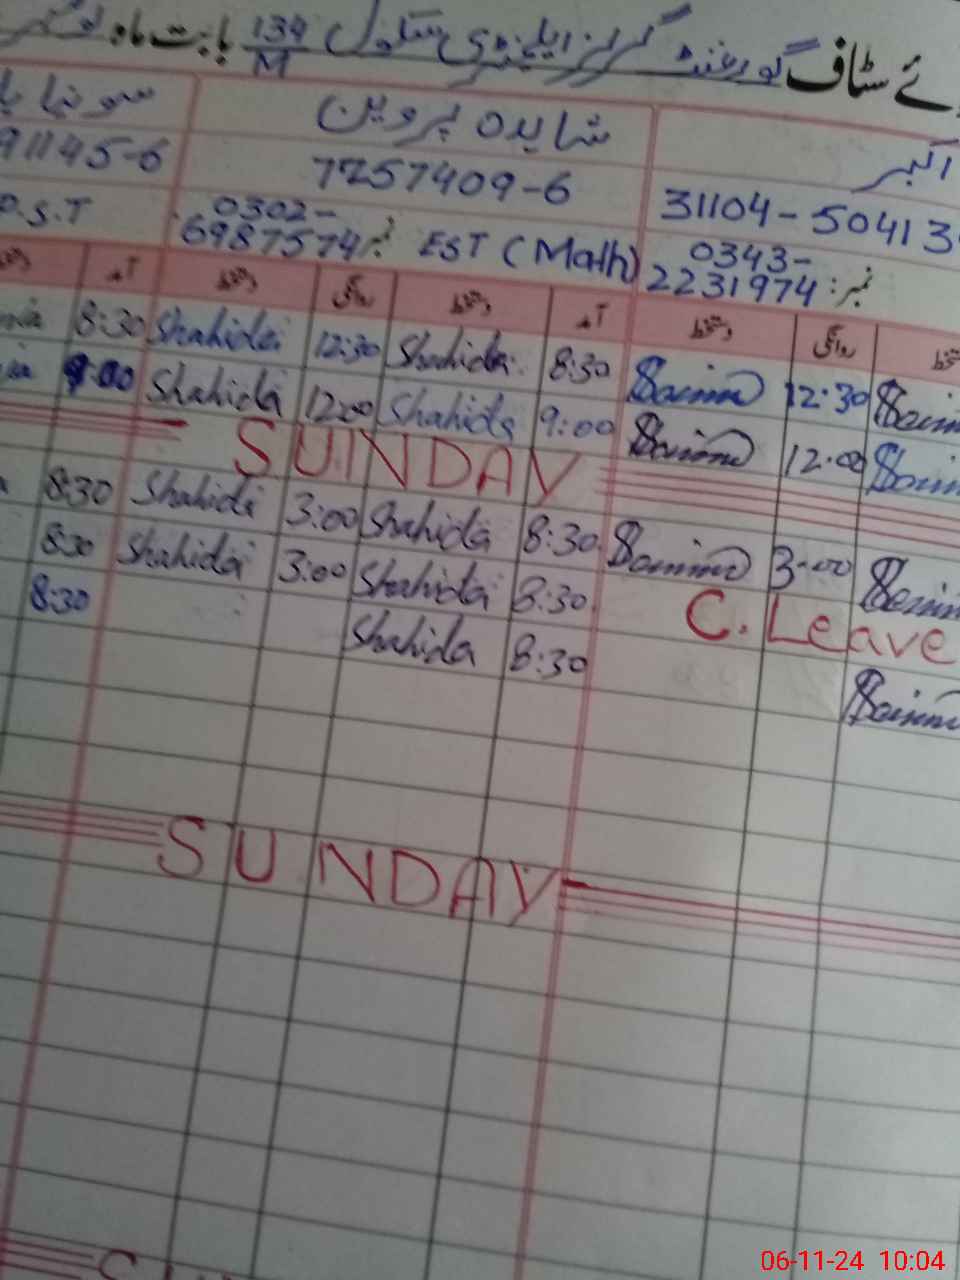 ئے سٹاف گورنمنٹ گرلز ایلیمنٹری سکول 134/M بابت ماہ
اکبر شاہدہ پروین سونیا
31104-50413 7257409-6 91145-6
0343-2231974 نمبر: EST (Math) 0302-6987574 نمبر: P.S.T
دستخط روانگی دستخط آمد دستخط روانگی دستخط آمد
8:30 Shahida 12:30 Shahida 8:30 12:30
9:00 Shahida 12:00 Shahida 9:00 12:00
SUNDAY
8:30 Shahida 3:00 Shahida 8:30 3:00
8:30 Shahida 3:00 Shahida 8:30 C. Leave
8:30 Shahida 8:30
SUNDAY
06-11-24 10:04